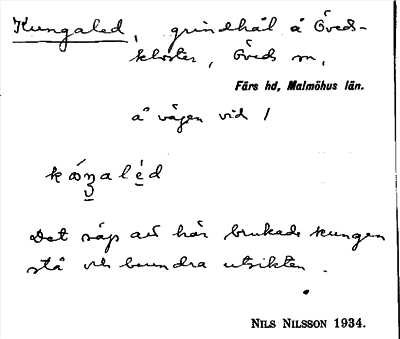 Kungaled, grindhål å Öveds-
kloster, Öveds sn,
Färs hd, Malmöhus län.
å vägen vid 1
Det säps att här brukade kungen
stå och beundra utsikten.
NILS NILSSON 1934.